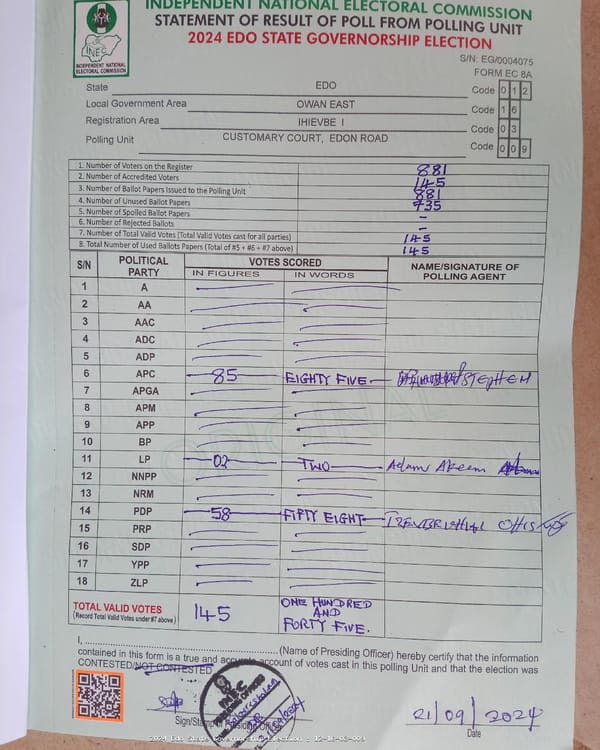 INDEPENDENT NATIONAL ELECTORAL COMMISSION
STATEMENT OF RESULT OF POLL FROM POLLING UNIT
2024 EDO STATE GOVERNORSHIP ELECTION
INEC
INDEPENDENT NATIONAL
ELECTORAL COMMISSION
S/N: EG/0004075
FORM EC 8A
State EDO Code 0 1 2
Local Government Area OWAN EAST Code 1 6
Registration Area IHIEVBE I Code 0 3
Polling Unit CUSTOMARY COURT, EDON ROAD Code 0 0 9
1. Number of Voters on the Register 881
2. Number of Accredited Voters 145
3. Number of Ballot Papers Issued to the Polling Unit 881
4. Number of Unused Ballot Papers 735
5. Number of Spoiled Ballot Papers -
6. Number of Rejected Ballots -
7. Number of Total Valid Votes (Total Valid Votes cast for all parties) 145
8. Total Number of Used Ballots Papers (Total of #5 + #6 + #7 above) 145
S/N POLITICAL PARTY VOTES SCORED NAME/SIGNATURE OF POLLING AGENT
IN FIGURES IN WORDS
1 A
2 AA
3 AAC
4 ADC
5 ADP
6 APC 85 EIGHTY FIVE STEPHEN
7 APGA
8 APM
9 APP
10 BP
11 LP 02 TWO Adams Akeem
12 NNPP
13 NRM
14 PDP 58 FIFTY EIGHT
15 PRP
16 SDP
17 YPP
18 ZLP
ORIGINAL
TOTAL VALID VOTES 145 ONE HUNDRED
(Record Total Valid Votes under #7 above) AND
FORTY FIVE.
I, ........ (Name of Presiding Officer) hereby certify that the information
contained in this form is a true and accurate account of votes cast in this polling Unit and that the election was
CONTESTED/NOT CONTESTED
INEC
Sign/Stamp of Presiding Officer
21/09/2024
Date